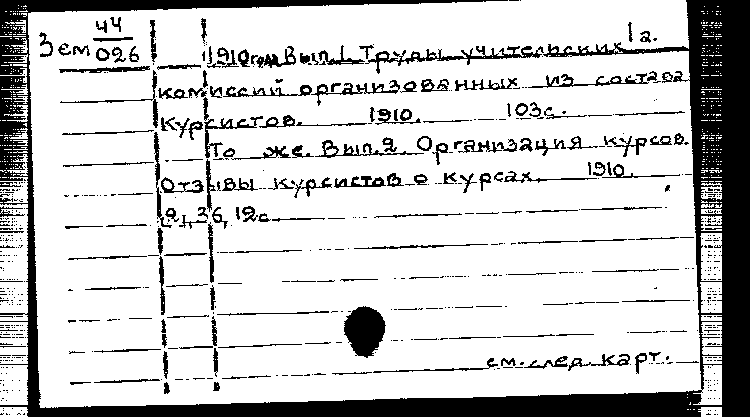 1 г.
Зем 44/026
1910 года Вып.1. Труды учительских
комиссий организованных из состава
Курсистов. 1910. 103с.
То же. Вып.2. Организация курсов.
Отзывы курсистов о курсах. 1910.
21, 36, 12с.
см. след. карт.